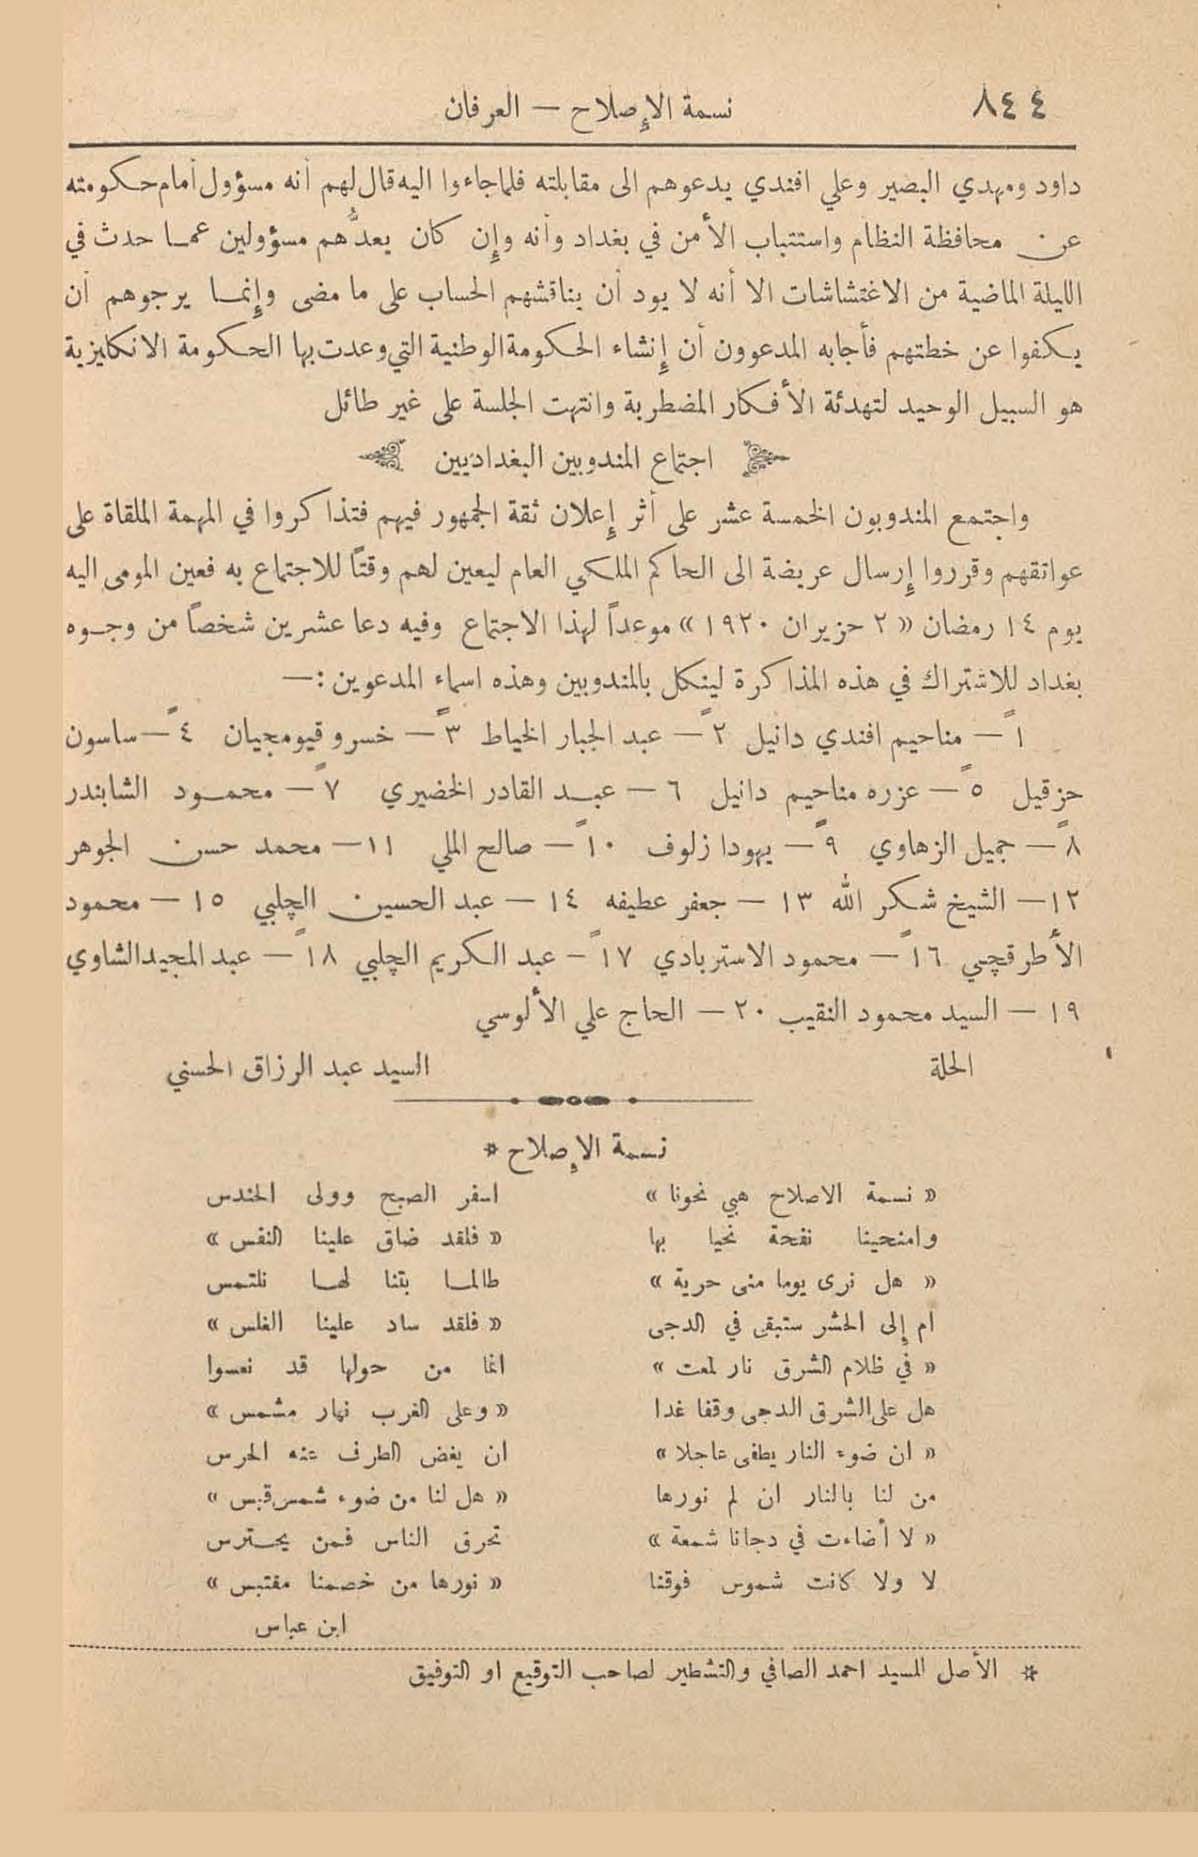 ٨٤٤ نسمة الإصلاح — العرفان
داود ومهدي البصير وعلي افندي يدعوهم الى مقابلته فلما جاءوا اليه قال لهم أنه مسؤول أمام حكومته
عن محافظة النظام واستتباب الأمن في بغداد وأنه وإن كان يعدُّهم مسؤولين عما حدث في
الليلة الماضية من الاغتشاشات الا أنه لا يود أن يناقشهم الحساب على ما مضى وإنما يرجوهم أن
يكفوا عن خطتهم فأجابه المدعوون أن إنشاء الحكومة الوطنية التي وعدت بها الحكومة الانكليزية
هو السبيل الوحيد لتهدئة الأفكار المضطربة وانتهت الجلسة على غير طائل
اجتماع المندوبين البغداديين
واجتمع المندوبون الخمسة عشر على أثر إعلان ثقة الجمهور فيهم فتذاكروا في المهمة الملقاة على
عواتقهم وقرروا إرسال عريضة الى الحاكم الملكي العام ليعين لهم وقتاً للاجتماع به فعين المومى اليه
يوم ١٤ رمضان « ٢ حزيران ١٩٢٠ » موعداً لهذا الاجتماع وفيه دعا عشرين شخصاً من وجوه
بغداد للاشتراك في هذه المذاكرة لينكل بالمندوبين وهذه اسماء المدعوين :—
١ — مناحيم افندي دانيل ٢ — عبد الجبار الخياط ٣ — خسرو قيومجيان ٤ — ساسون
حزقيل ٥ — عزره مناحيم دانيل ٦ — عبد القادر الخضيري ٧ — محمود الشابندر
٨ — جميل الزهاوي ٩ — يهودا زلوف ١٠ — صالح الملي ١١ — محمد حسن الجوهر
١٢ — الشيخ شكر الله ١٣ — جعفر عطيفه ١٤ — عبد الحسين الچلبي ١٥ — محمود
الأطرقچي ١٦ — محمود الاستربادي ١٧ — عبد الكريم الچلبي ١٨ — عبد المجيد الشاوي
١٩ — السيد محمود النقيب ٢٠ — الحاج علي الألوسي
الحلة السيد عبد الرزاق الحسني
نسمة الإصلاح *
« نسمة الاصلاح هبي نحونا » اسفر الصبح وولى الحندس
وامنحينا نفحة نحيا بها « فلقد ضاق علينا النفس »
« هل نرى يوما منى حرية » طالما بتنا لها نلتمس
ام إلى الحشر ستبقى في الدجى « فلقد ساد علينا الغلس »
« في ظلام الشرق نار لمعت » انما من حولها قد نعسوا
هل على الشرق الدجى وقفا غدا « وعلى الغرب نهار مشمس »
« ان ضوء النار يطفى عاجلا » ان يغض الطرف عنه الحرس
من لنا بالنار ان لم نورها « هل لنا من ضوء شمس قبس »
« لا أضاءت في دجانا شمعة » تحرق الناس فمن يحترس
لا ولا كانت شموس فوقنا « نورها من خصمنا مقتبس »
ابن عباس
* الأصل للسيد احمد الصافي والتشطير لصاحب التوقيع او التوفيق